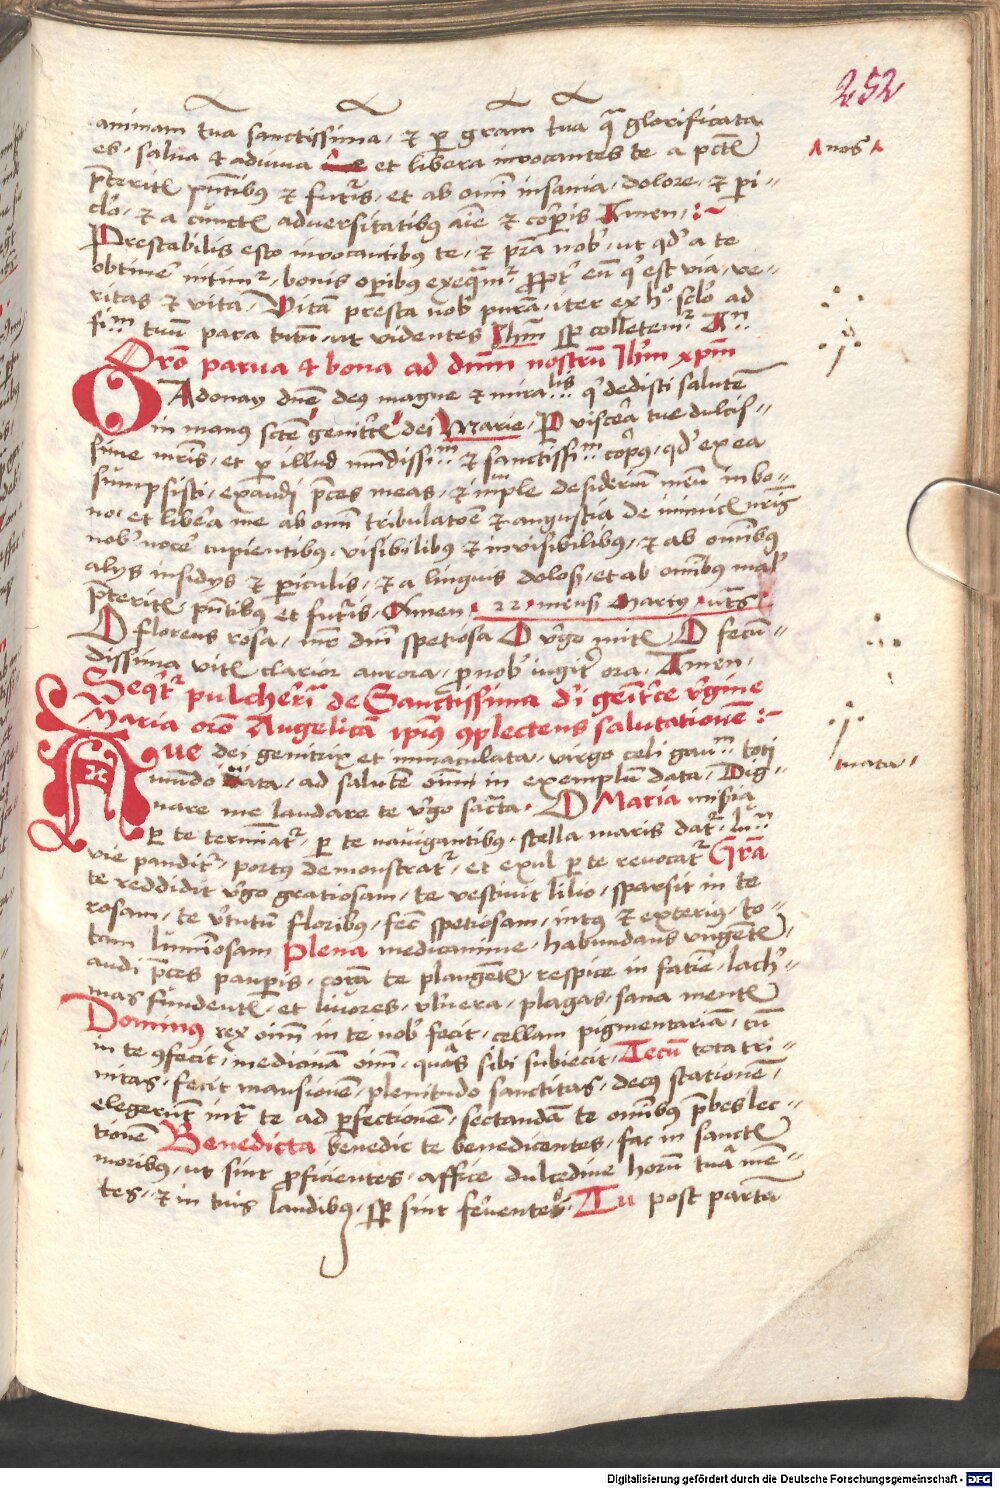 252
animam tua sanctissima, et per gram tua q glorificata
es, salva et adiuva et libera invocantes te a pctis
nos
pteritis pntibus et futuris, et ab omni insania, dolore, et peri-
clo, et a cunctis adversitatibus aie et corporis Amen
Prestabilis esto invocantibus te, et pra nob, ut qd a te
obtinere nitimur, bonis operibus exequamur, propter eum qui est via, ve-
ritas et vita, Vitam presta nob puram, iter ex hoc sclo ad
tuum para tutum ut videntes Ihm sp colletemur
Oro parva et bona ad dnm nostru Ihm xpm
O Adonay dne deus magne et mira.lis q dedisti salute
in manus scte genitrc dei Marie, P viscera tue dulcis-
sime mris, et p illud et sanctissi.m corpus, qd ex ea
sumpsisti, exaudi pces meas, et imple desideriu meu in bo-
no, et libera me ab omi tribulatoe et angustia de inimicis
nob nocere cupientibus, visibilibus et invisibilibus, et ab omibus
alys insidys et periculis, et a linguis dolosis, et ab omibus malis
pteritis pntibus et futuris, Amen, 22 mensis Marty
O florens rosa, mr dni spetiosa O virgo mitis O fecun-
dissima vitis clarior aurora, p nob iugiter ora, Amen,
Sequitr pulcherria de Sanctissima di genitrce virgine
Maria oro Angelicam ipsius complectens salutationem
Ave dei genitrix et immaculata, virgo celi toti
mundo, ad salute oim in exemplum data, Dig-
nata
nare me laudare te virgo sacrata, O Maria
p te terminatur, p te navigantibus stella maris datur
vie panditur, portus demonstratur, et exul p te revocatur Gra
te reddidit virgo gratiosam, te vestivit lilio, sparsit in te
rosam, te virtutum floribus, fec spetiosam, intus et exterius, to-
tam luminosam Plena medicamine, habundans ungentis
audi pces pauperis, cora te plangentis, respice in facie, lachri-
mas fundentis, et livores, vlnera, plagas, sana mentis
Dominus rex oim in te nob fecit, cellam pigmentariam, cu
in te confecit, medicinam oim, quas sibi subiecit, Tecum tota tri-
nitas, fecit mansionem, plenitudo sanctitas, decus stationem,
elegerunt te ad perfectionem, sectandam te omibus lec-
tionem Benedicta benedic te benedicentes, fac in sanctis
moribus, ut sint proficientes, affice dulcedine horum tua men-
tes, et in tuis laudibus, sp sint ferventes, Tu post partum
Digitalisierung gefördert durch die Deutsche Forschungsgemeinschaft - DFG